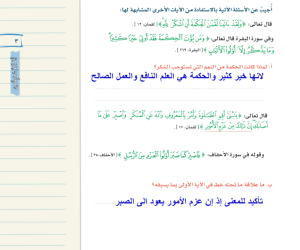 أجيب عن الأسئلة الآتية بالاستفادة من الآيات الأخرى المتشابهة لها:
قال تعالى: ﴿وَلَقَدْ آتَيْنَا لُقْمَانَ الْحِكْمَةَ أَنِ اشْكُرْ لِلَّهِ﴾ [لقمان: ١٢].
وفي سورة البقرة قال تعالى: ﴿وَمَن يُؤْتَ الْحِكْمَةَ فَقَدْ أُوتِيَ خَيْرًا كَثِيرًا
وَمَا يَذَّكَّرُ إِلَّا أُولُو الْأَلْبَابِ﴾ [البقرة: ٢٦٩].
أ- لماذا كانت الحكمة من النعم التي تستوجب الشكر؟
لانها خير كثير والحكمة هي العلم النافع والعمل الصالح
قال تعالى: ﴿يَا بُنَيَّ أَقِمِ الصَّلَاةَ وَأْمُرْ بِالْمَعْرُوفِ وَانْهَ عَنِ الْمُنكَرِ وَاصْبِرْ عَلَى مَا
أَصَابَكَ إِنَّ ذَلِكَ مِنْ عَزْمِ الْأُمُورِ﴾ [لقمان: ١٧].
وقوله في سورة الأحقاف: ﴿فَاصْبِرْ كَمَا صَبَرَ أُولُو الْعَزْمِ مِنَ الرُّسُلِ﴾ [الأحقاف: ٣٥].
ب- ما علاقة ما تحته خط في الآية الأولى بما يسبقه؟
تأكيد للمعنى إذ إن عزم الأمور يعود الى الصبر
٣